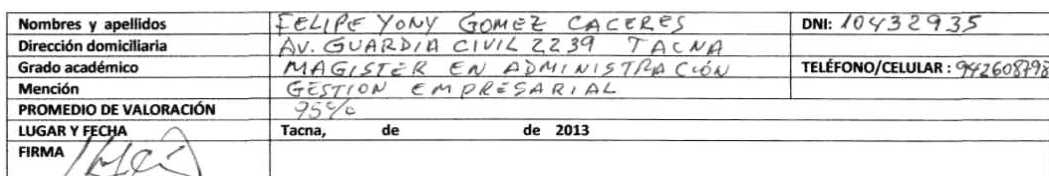 Nombres y apellidos FELIPE YONY GOMEZ CACERES DNI: 10432935
Dirección domiciliaria AV. GUARDIA CIVIL 2239 TACNA
Grado académico MAGISTER EN ADMINISTRACIÓN TELÉFONO/CELULAR : 942608798
Mención GESTION EMPRESARIAL
PROMEDIO DE VALORACIÓN 95%
LUGAR Y FECHA Tacna, de de 2013
FIRMA